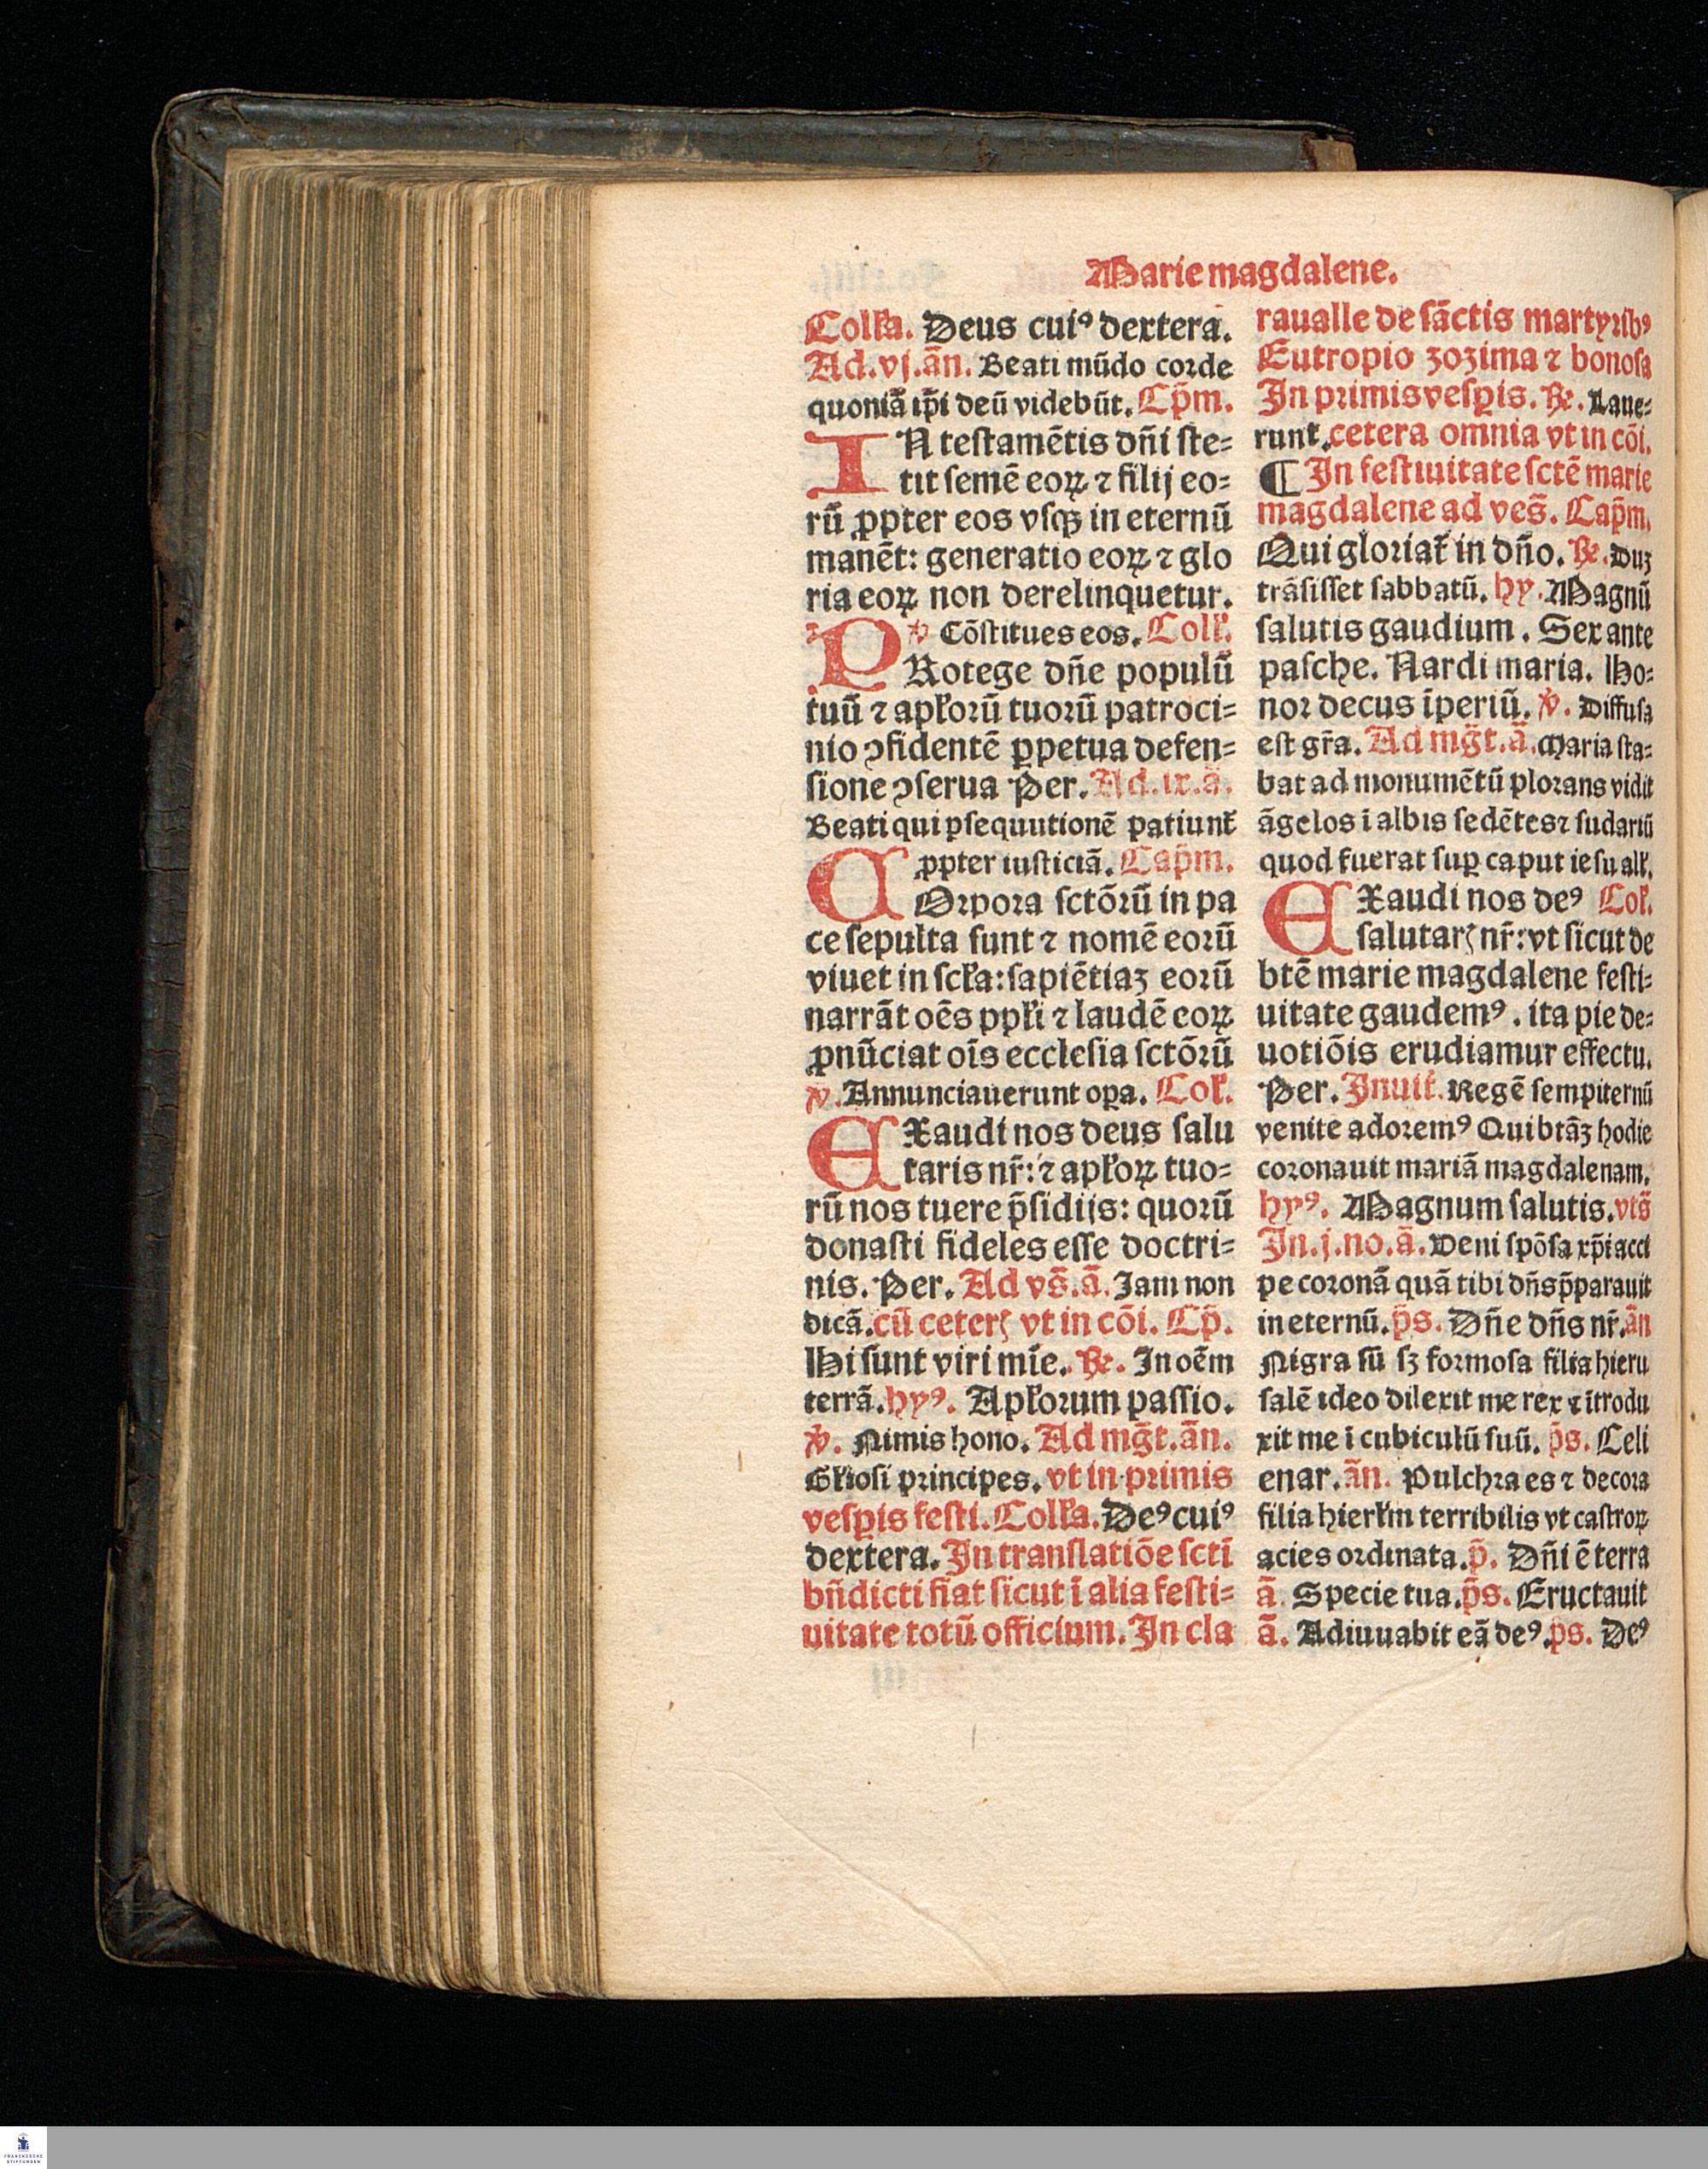 Marie magdalene.
Collꝉa. Deus cuiꝰ dextera.
Ad.vj.ãn. Beati mũdo corde
quoniã ip̃i deũ videbũt. Cp̃m.
IN teſtamẽtis dñi ſte⸗
tit ſemẽ eoꝝ ⁊ filij eo⸗
rũ ꝓpter eos vſqꝫ in eternũ
manẽt: generatio eoꝝ ⁊ glo
ria eoꝝ non derelinquetur.
℣ Cõſtitues eos. Collꝉ.
PRotege dñe populũ
tuũ ⁊ apꝉoꝛũ tuoꝛũ patroci⸗
nio ꝯfidentẽ ꝑpetua defen⸗
ſione ꝯſerua Per. Ad.ix.ã.
Beati qui pſequutionẽ patiunt᷑
ꝓpter iuſticiã. Cap̃m.
COꝛpoꝛa ſctõꝛũ in pa
ce ſepulta ſunt ⁊ nomẽ eoꝛũ
viuet in ſcꝉa: ſapiẽtiaꝫ eoꝛũ
narrãt oẽs ppꝉi ⁊ laudẽ eoꝝ
ꝓnũciat oĩs eccleſia ſctõꝛũ
℣. Annunciauerunt oꝑa. Colꝉ.
EXaudi nos deus ſalu
taris nr̃: ⁊ apꝉoꝝ tuo⸗
rũ nos tuere p̃ſidijs: quoꝛũ
donaſti fideles eſſe doctri⸗
nis. Per. Ad vs̃.ã. Jam non
dicã. cũ ceterꝭ vt in cõi. Cp̃.
Hi ſunt viri mĩe. ℞. In oẽm
terrã. hyꝰ. Apꝉoꝛum paſſio.
℣. Nimis hono. Ad mg̃t.ãn.
Gꝉioſi pꝛincipes. vt in pꝛimis
veſꝑis feſti. Collꝉa. Deꝰ cuiꝰ
dextera. In tranſlatiõe ſcti
bñdicti fiat ſicut ĩ alia feſti⸗
uitate totũ officium. In cla
raualle de ſãctis martyꝛibꝰ
Eutropio ꝫoꝫima ⁊ bonoſa
In pꝛimis veſꝑis. ℞. Laue⸗
runt. cetera omnia vt in cõi.
¶ In feſtiuitate ſctẽ marie
magdalene ad ves̃. Cap̃m.
Qui gloꝛiat᷑ in dño. ℞. Duꝫ
trãſiſſet ſabbatũ. hy. Magnũ
ſalutis gaudium. Sex ante
paſche. Nardi maria. Ho⸗
noꝛ decus ĩperiũ. ℣. Diffuſa
eſt gr̃a. Ad mg̃t.ã. Maria ſta⸗
bat ad monumẽtũ ploꝛans vidit
ãgelos ĩ albis ſedẽtes ⁊ ſudariũ
quod fuerat ſuꝑ caput ieſu allꝉ.
EXaudi nos deꝰ Colꝉ.
ſalutarꝭ nr̃: vt ſicut de
btẽ marie magdalene feſti⸗
uitate gaudemꝰ. ita pie de⸗
uotiõis erudiamur effectu.
Per. Inuit. Regẽ ſempiternũ
venite adoꝛemꝰ Qui btãꝫ hodie
coꝛonauit mariã magdalenam.
hyꝰ. Magnum ſalutis. vts̃
In.j.no.ã. Veni ſpõſa xp̃i acci
pe coꝛonã quã tibi dñs p̃parauit
in eternũ. p̃s. Dñe dñs nr̃. ãn
Nigra ſũ ſꝫ foꝛmoſa filia hieru
ſalẽ ideo dilexit me rex ⁊ ĩtrodu
xit me ĩ cubiculũ ſuũ. p̃s. Celi
enar. ãn. Pulchꝛa es ⁊ decoꝛa
filia hierꝉm terribilis vt caſtroꝝ
acies oꝛdinata. p̃. Dñi ẽ terra
ã. Specie tua. p̃s. Eructauit
ã. Adiuuabit eã deꝰ. ps. Deꝰ
FRANCKESCHE
STIFTUNGEN